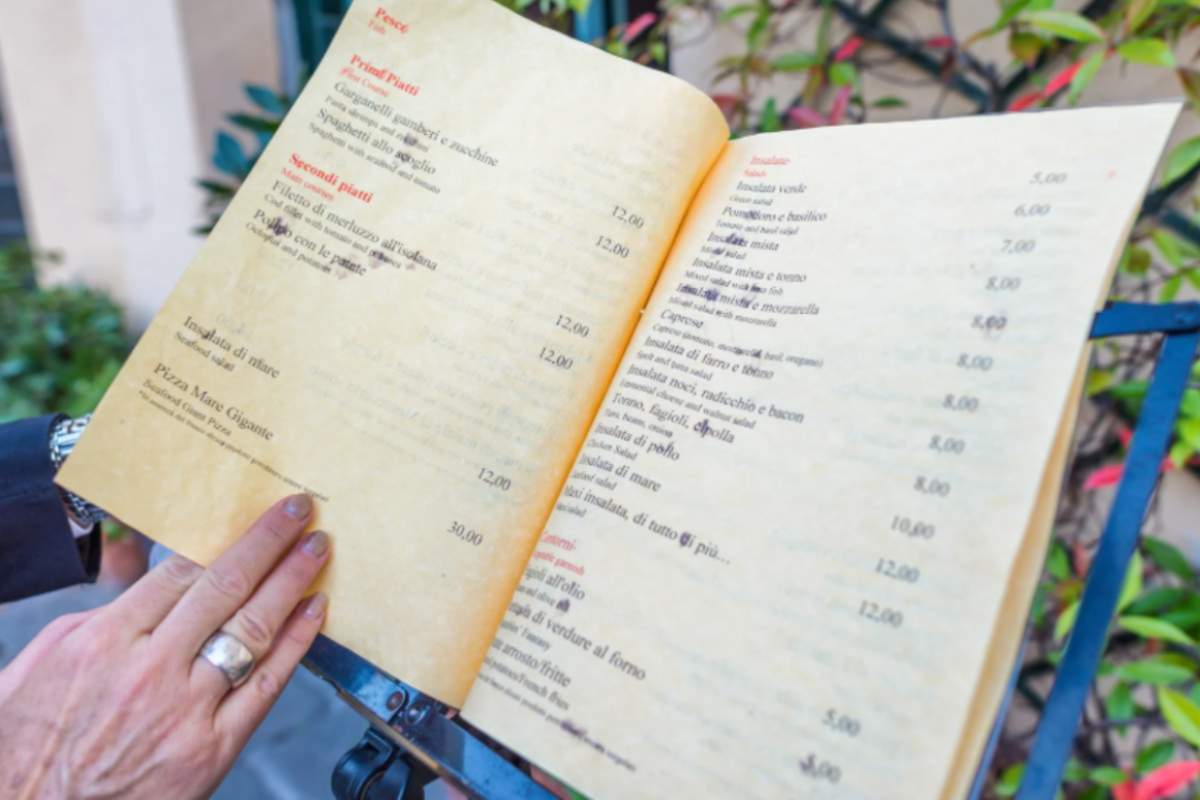 Pesce
Fish
Primi Piatti
First Course
Garganelli gamberi e zucchine
Pasta shrimps and
12,00
Spaghetti allo scoglio
Spaghetti with seafood and tomato
12,00
Secondi piatti
Main courses
Filetto di merluzzo all'isolana
Cod fillet with tomato and potatoes
12,00
Polipo con le patate
Octopus and potatoes
12,00
Insalata di mare
Seafood salad
12,00
Pizza Mare Gigante
Seafood Giant Pizza
30,00
Insalate
Salads
Insalata verde
Green salad
5,00
Pomodoro e basilico
Tomato and basil salad
6,00
Insalata mista
Mixed salad
7,00
Insalata mista e tonno
Mixed salad with tuna fish
8,00
Insalata mista e mozzarella
Mixed salad with mozzarella
8,00
Caprese
Caprese (tomato, mozzarella, basil, oregano)
8,00
Insalata di farro e tonno
Spelt and tuna salad
8,00
Insalata noci, radicchio e bacon
Emmental cheese and walnut salad
8,00
Tonno, fagioli, cipolla
Tuna, beans, onion
8,00
Insalata di pollo
Chicken Salad
10,00
Insalata di mare
Seafood salad
12,00
insalata, di tutto di più...
12,00
Contorni
garnish
all'olio
and olive oil
5,00
di verdure al forno
Fantasy
5,00
arrosto/fritte
potatoes/French fries